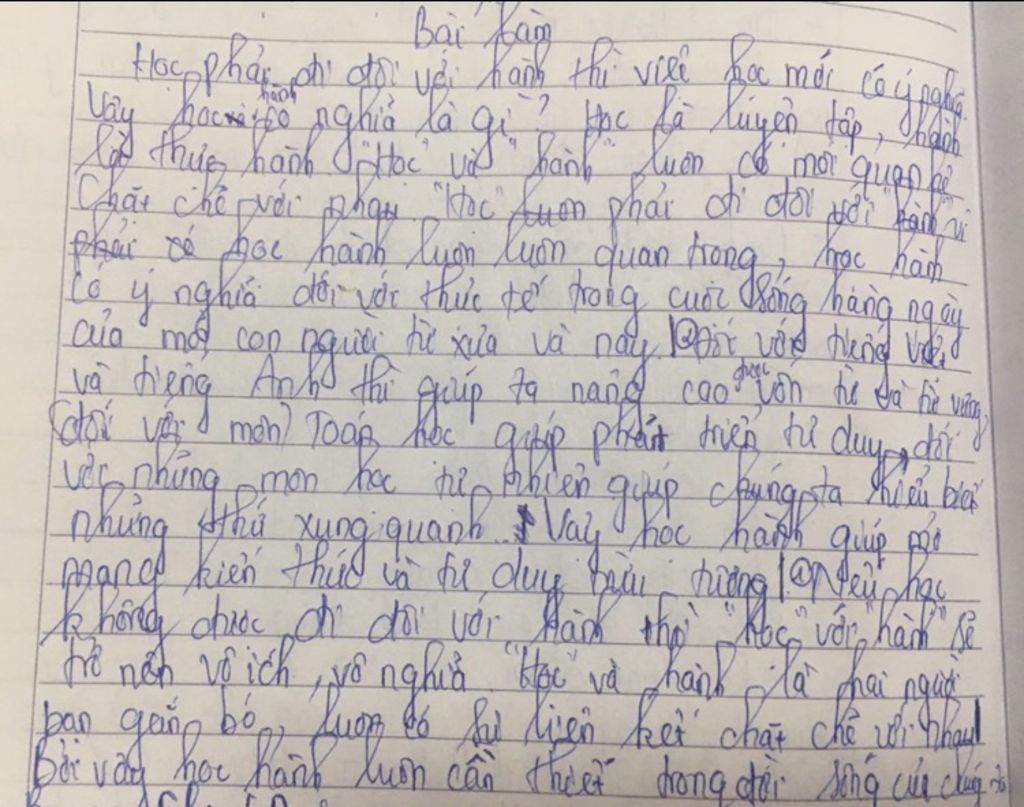 Bài làm
Học phải đi đôi với hành thì việc học mới có ý nghĩa.
Vậy học hành có nghĩa là gì? Học là luyện tập, hành
là thực hành "Học" và "hành" luôn có mối quan hệ
chặt chẽ với nhau. "Học" luôn phải đi đôi với "hành" vì
học hành luôn luôn quan trọng, học hành
có ý nghĩa đối với thực tế trong cuộc sống hàng ngày
của mỗi con người từ xưa và nay. Đối với tiếng việt
và tiếng Anh thì giúp ta nâng cao được vốn từ và từ vựng,
(đối với môn) Toán học giúp phát triển tư duy, đối
với những môn học tự nhiên giúp chúng ta hiểu biết
những thứ xung quanh. Vậy học hành giúp mở
mang kiến thức và tư duy trừu tượng. Nếu học
không được đi đôi với hành thì "học" với "hành" sẽ
trở nên vô ích, vô nghĩa. "Học" và hành là hai người
bạn gắn bó, luôn có sự liên kết chặt chẽ với nhau
Bởi vậy học hành luôn cần thiết trong đời sống của chúng ta